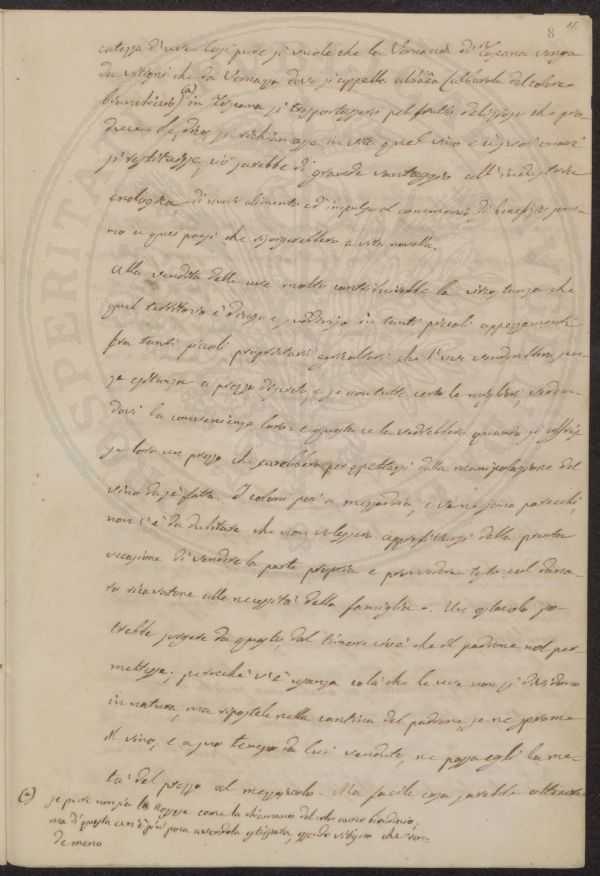 8
catezza d'uve. Così pure si vuole che la Vernaccia di Toscana venga
da vitigni che da Vernazza dove si appella
bianchiccio (a) in Toscana si trasportassero pel frutto delizioso che pro-
duce. Se, dico, si richiamasse in vita quel vino e ai prischi onori
si restituisse, ciò sarebbe di grande vantaggio all'industria
enologica, di nuovo alimento ed impulso al commercio, di benefizio som-
mo a quei paesi che risorgerebbero a vita novella.
Alla vendita delle uve molto contribuirebbe la circostanza che
quel territorio è diviso e suddiviso in tanti piccoli appezzamenti
fra tanti piccoli proprietarii agricoltori che l'uve venderebbero sen-
za esitanza a prezzo discreto, e se non tutte certo le migliori, veden-
dovi la convenienza loro: e questa ce la vedrebbero quando si offris-
se loro un prezzo che sarebbero per aspettarsi dalla manipolazione del
vino da sè fatta. I coloni poi a mezzadria, e ve ne sono parecchi,
non v'è da dubitare che non volessero approfittarsi della pronta
occasione di vendere la parte propria e provvedere tosto col dana-
ro ricavatone alle necessità della famiglia. Un ostacolo po-
trebbe sorgere da questo, dal timore cioè che il padrone nol per
mettesse; perocchè v'è usanza colà che le uve non si dividono
in natura, ma ripostele nella cantina del padrone, se ne spreme
il vino, e a suo tempo da lui vendute, ne passa egli la me-
tà del prezzo al mezzajuolo. Ma facile cosa sarebbe ottenere
(a) se pure non sia la Rossese come la chiamano dal colore bianchiccio,
ma di questa ora v'è più poca avendola estirpata, essendo vitigno che ren-
de meno